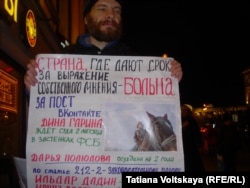 СТРАНА, ГДЕ ДАЮТ СРОК
ЗА ВЫРАЖЕНИЕ
СОБСТВЕННОГО МНЕНИЯ - БОЛЬНА
ЗА ПОСТ
ВКОНТАКТЕ
ДИНА ГАРИНА
ЖДЕТ СУДА 2 МЕСЯЦА
В ЗАСТЕНКАХ ФСБ
ДАРЬЯ ПОЛЮДОВА ОСУЖДЕНА НА 2 ГОДА
ПО СТАТЬЕ 212-2
ИЛЬДАР ДАДИН
Tatiana Voltskaya / RFE/RL